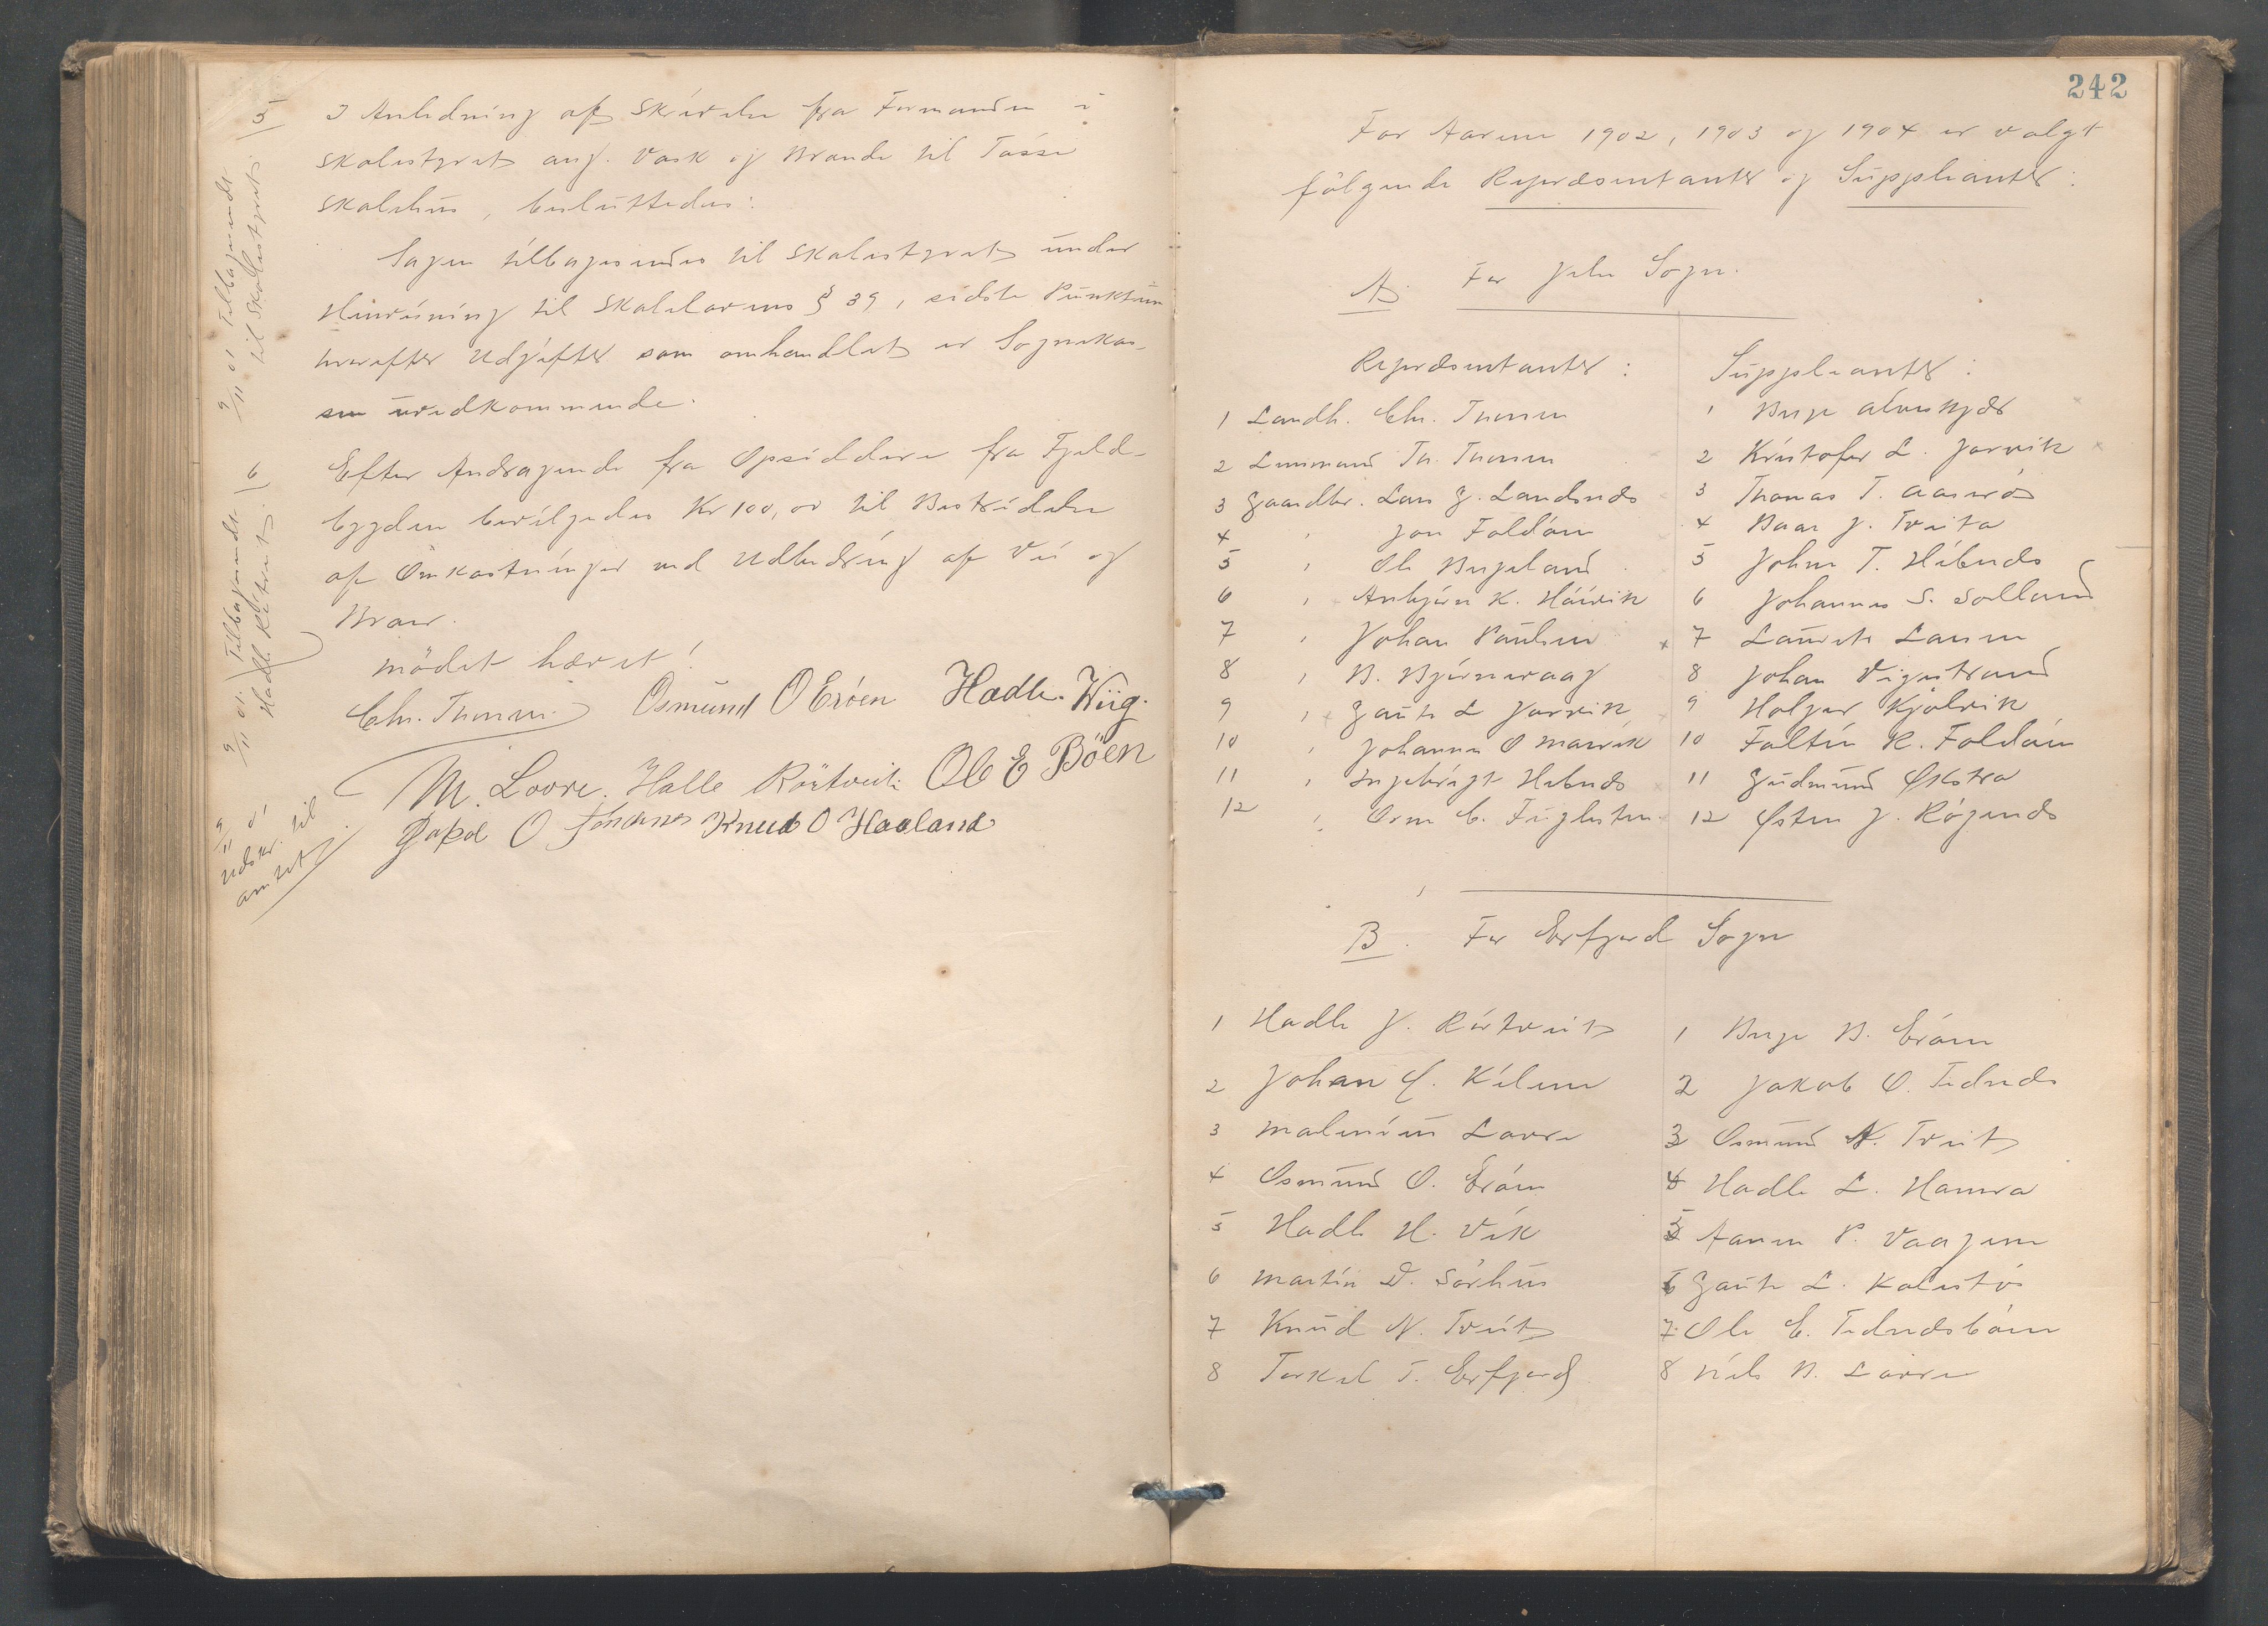 5
I Anledning af Skrivelse fra Formanden i
Skolestyret ang. Vask og Brænde til Tøsse
Skolehus, besluttedes:
Sagen tilbagesendes til Skolestyret under
Henvisning til Skolelovens § 39, sidste Punktum
hvorefter Udgifter som omhandlet er Sognekas-
sen uvedkommende.
6
Efter Andragende fra Opsiddere fra Fjeld-
bygden bevilgedes Kr 100,00 til Bestridelse
af Omkostninger ved Udbedring af Vei og
Broer.
Mödet hævet!
Chr. Thomsen Osmund O Eröen Hadle Wiig.
M. Lovre. Halle Rörtveit Ole E Böen
O Knud O Haaland
9/11 01 Tilbagesendt
til Skolestyret.
9/11 01. Tilbagesendt
Hadle Rörtveit.
9/11 01
Udskr. til
amtet
242
For Aarene 1902, 1903 og 1904 er valgt
fölgende Repræsentanter og Suppleanter:
A. For Jelse Sogn.
Repræsentanter: Suppleanter:
1 Landh. Chr. Thomsen 1 Berge
2 Lensmand Th. Thomsen 2 Kristofer L. Jørvik
3 Gaardbr. Lars G. Landsnæs 3 Thomas T.
4 " Jon Foldöen 4 Baar J. Tveita
5 " Ole Bergeland 5 Johne T. Hebnæs
6 " Asbjörn K. Hövik 6 Johannes S. Solland
7 " Johan Paulsen 7 Laurits Larsen
8 " B. Björnevaag 8 Johan Vigestrand
9 " Gaute L Jørvik 9 Holger Kjölvik
10 " Johannes O Marvik 10 Faltin R. Foldöen
11 " Ingebrigt Hebnæs 11 Gudmund Økstra
12 " Orm E. Fuglesteen 12 Østen J. Rögenæs
B. For Erfjord Sogn
1 Hadle J. Rörtveit 1 Berge B. Eröen
2 Johan C. Kilene 2 Jakob O. Tednæs
3 Malenius Lovre 3 Osmund N. Tveit
4 Osmund O. Eröen 4 Hadle L. Hamra
5 Hadle H. Vik 5 Aanen P. Vaagene
6 Martin D. Sörhus 6 Gaute L. Kolastö
7 Knud N. Tveit 7 Ole E. Tednæsböen
8 Torkel T. Erfjord 8 Nils B. Lovre